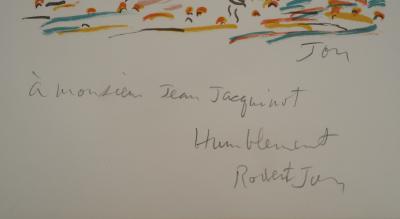 Jon
à monsieur Jean Jacquinot
Humblement
Robert Jon